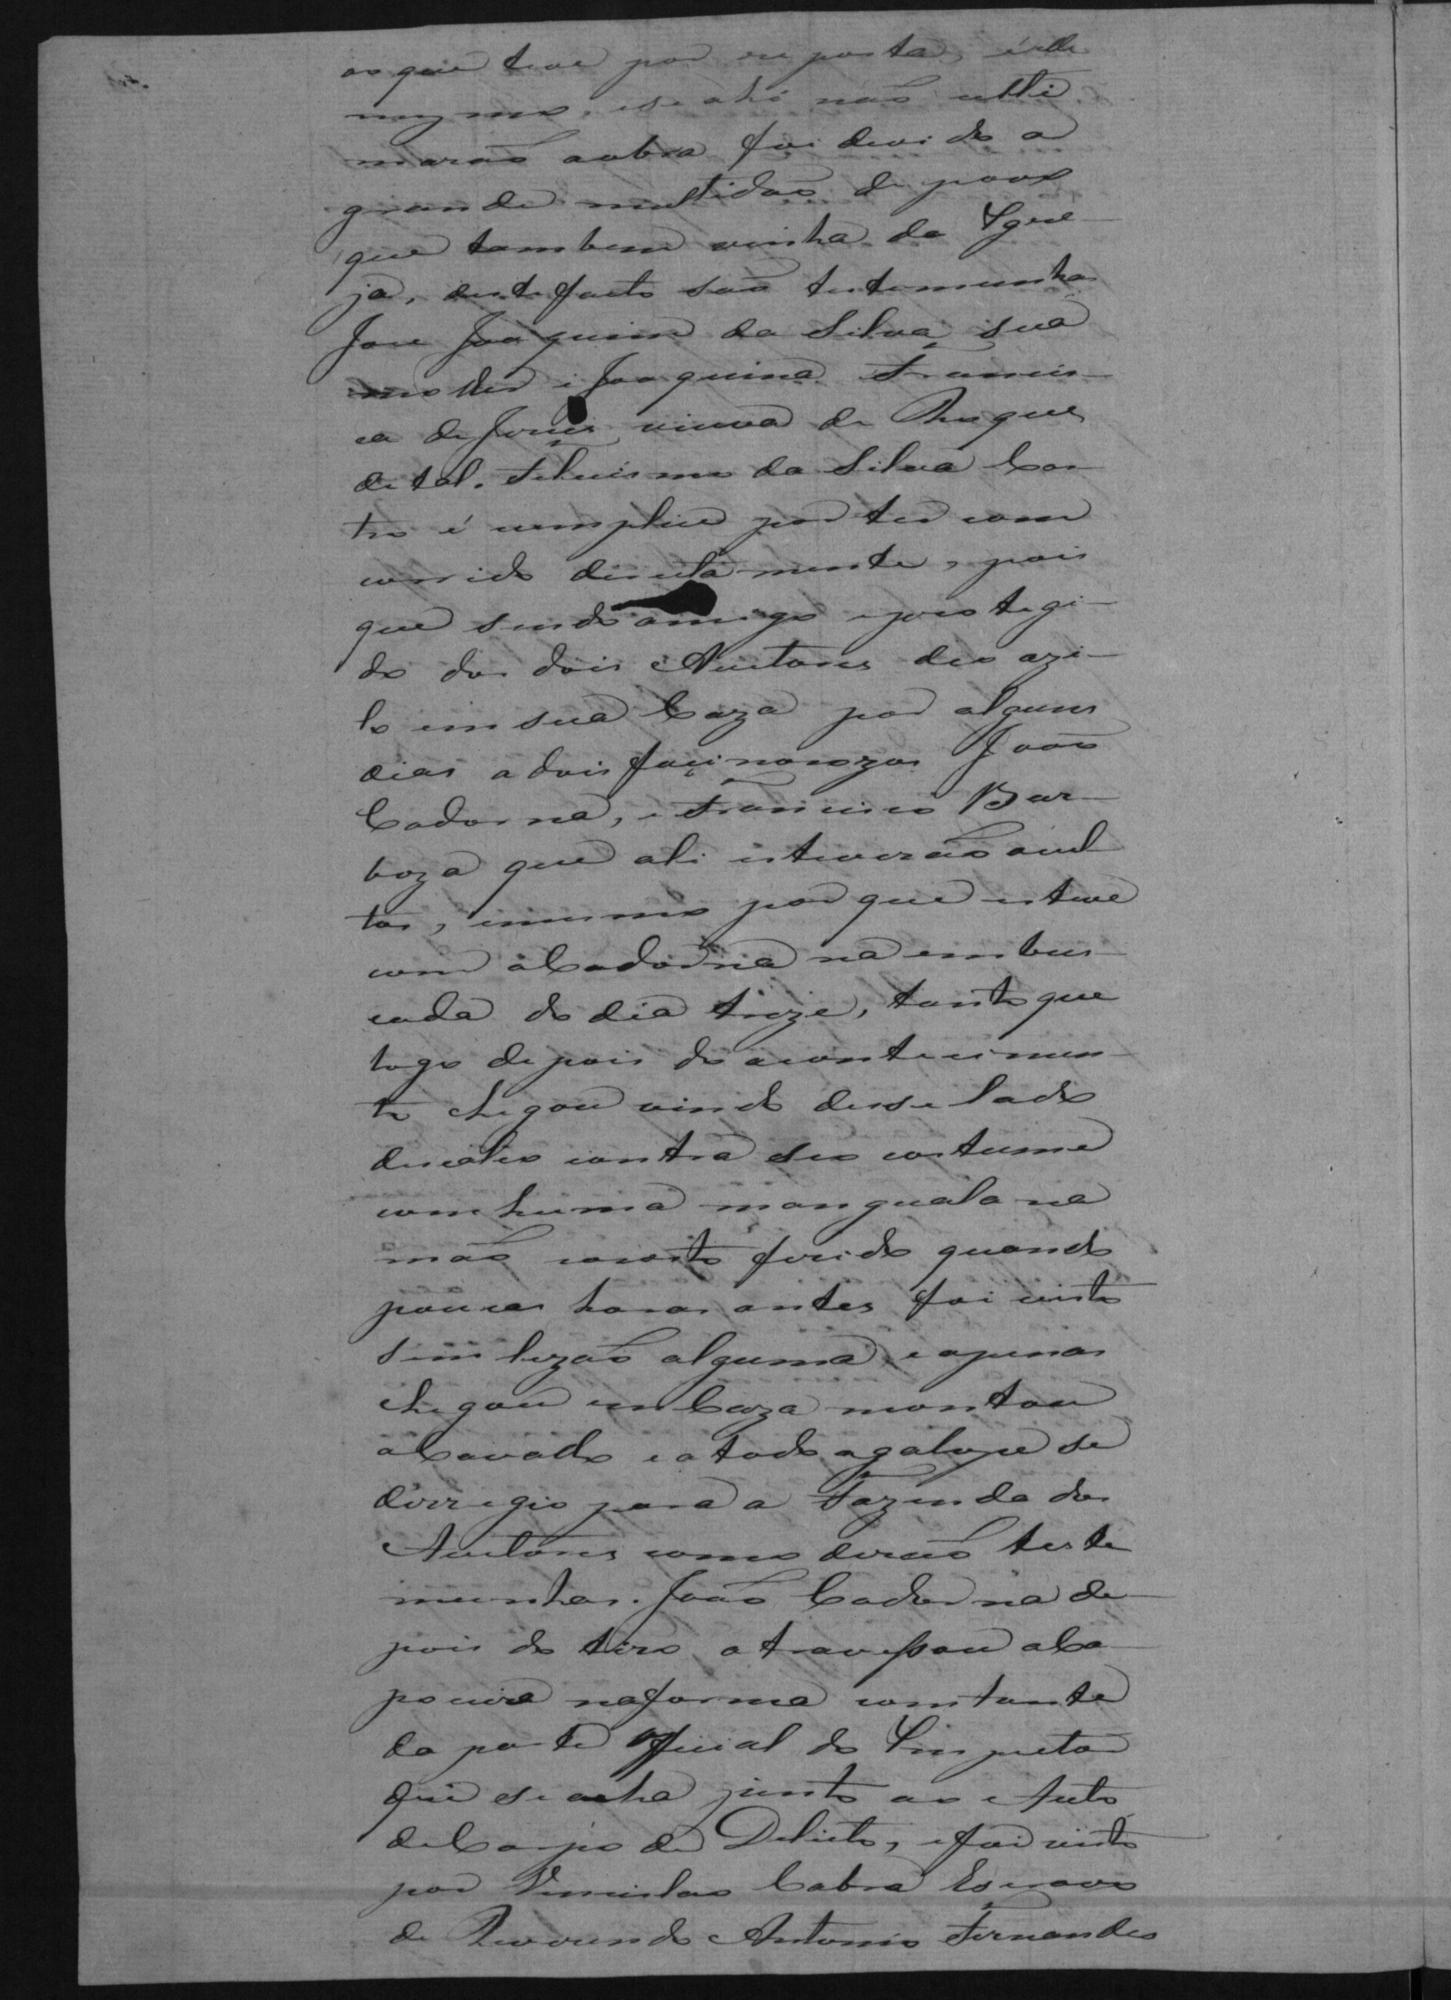 ao que teve por reposta, é elle
mesmo, e se ahi não ulti
marão a obra foi devido a
grande multidão de povo
que tambem vinha da Igre
ja, deste facto são testemunhas
Jose Joaquim da Silva, sua
molher e Joaquina Francis
ca de Jesus, viuva de Roque
de tal. Feluismo da Silva Cas
tro é cumplice por ter con
corrido diretamente, pois
que sendo amigo e protegi
do dos dois Auctores deo azi
lo em sua Caza por alguns
dias a dois facinorozos João
Cadorna, e Francisco Bar
boza que ali estiverão ocul
tos, e mesmo por que esteve
com o Cadorna na embus
cada do dia treze, tanto que
logo depois do acontecimen
to chegou vindo desse lado
descalço contra seo costume
com huma manguala na
mão e rosto ferido quando
poucas horas antes foi visto
sem lezão alguma, e apenas
chegou em Caza montou
a Cavallo e a todo agalope se
dirregio para a Fazenda dos
Auctores como dirão teste
munhas. João Cadorna de
pois do tiro atravessou a Ca
poeira na forma constante
da parte official do Inspetor
que se acha junto ao Auto
de Corpo de Delicto, e foi visto
por Vencislao Cabra Escravo
do Reverendo Antonio Fernandes